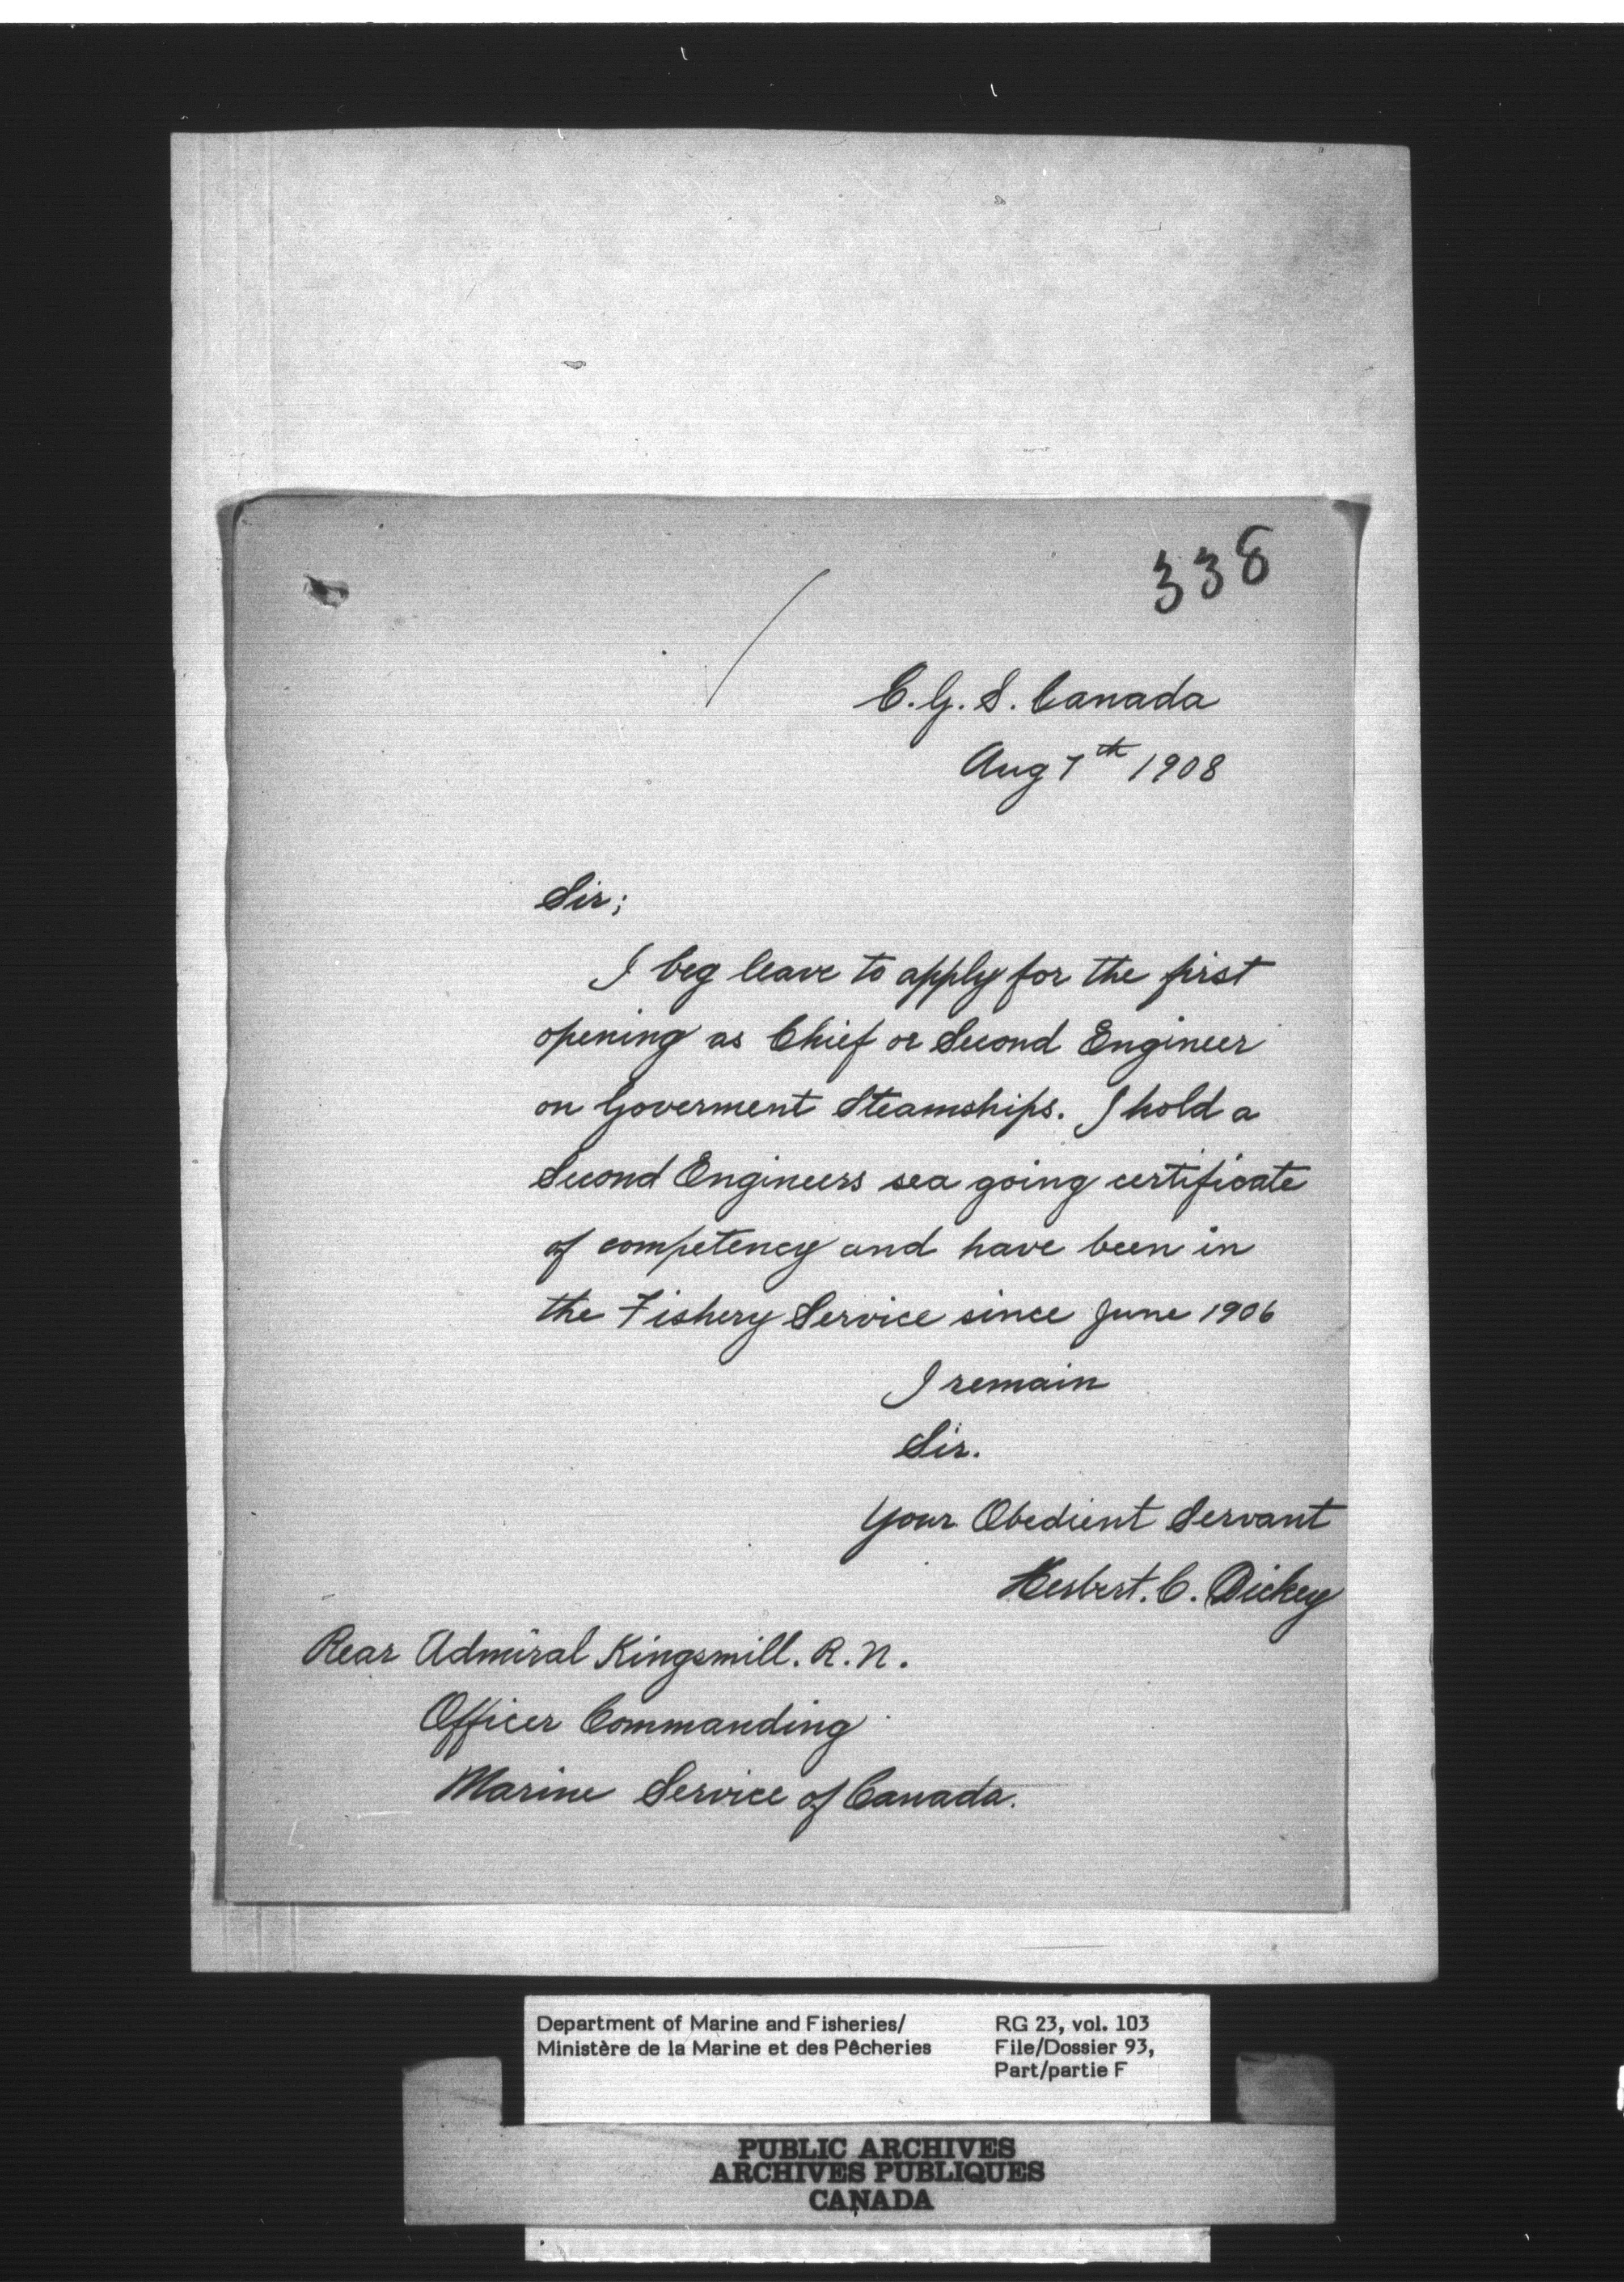 338
C. G. S. Canada
Aug 7th 1908
Sir;
I beg leave to apply for the first
opening as Chief or Second Engineer
on Goverment Steamships. I hold a
Second Engineers sea going certificate
of competency and have been in
the Fishery Service since June 1906
I remain
Sir.
Your Obedient Servant
Herbert. C. Dickey
Rear Admiral Kingsmill. R. N.
Officer Commanding
Marine Service of Canada.
Department of Marine and Fisheries/
Ministère de la Marine et des Pêcheries
RG 23, vol. 103
File/Dossier 93,
Part/partie F
PUBLIC ARCHIVES
ARCHIVES PUBLIQUES
CANADA